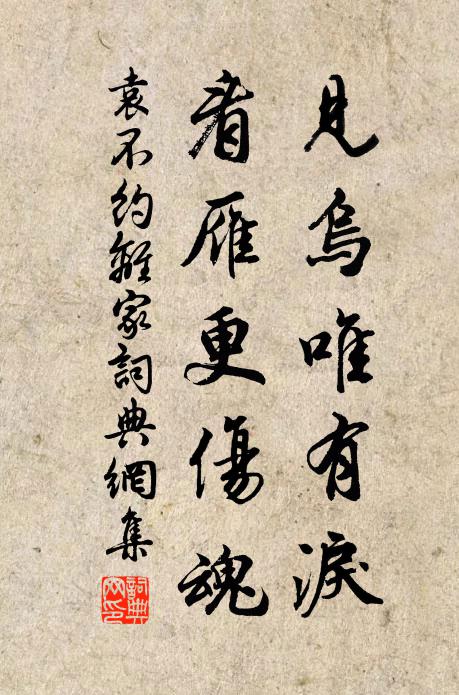 見烏唯有淚
看雁更傷魂
袁不約離家詞典網集
詞典